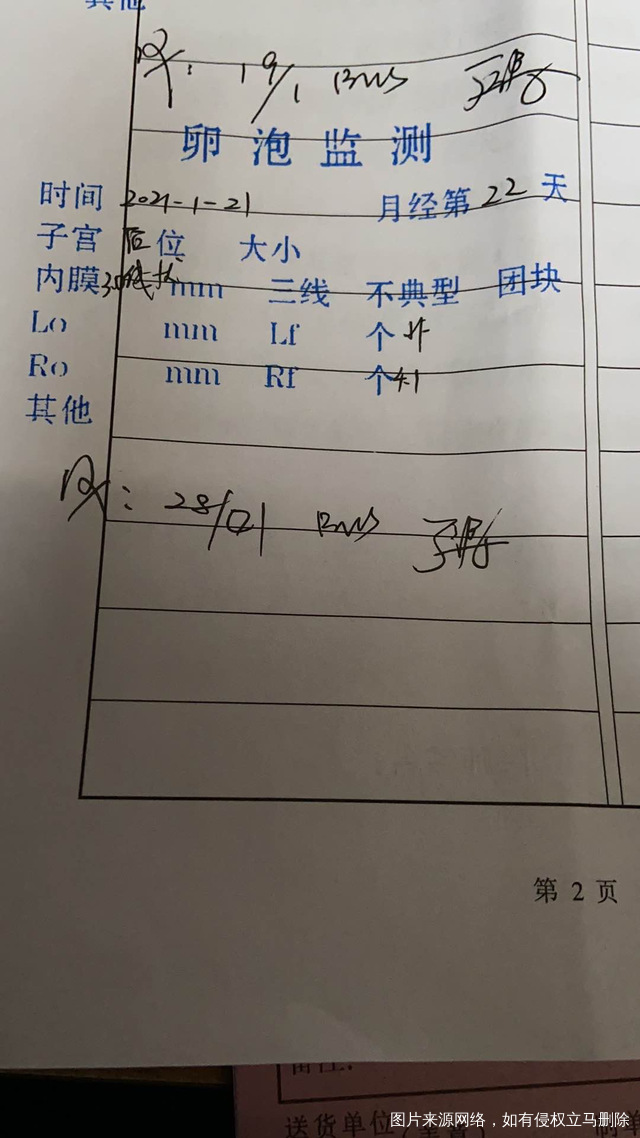 其他
Rx: 19/1 BMS
卵泡监测
时间 2021-1-21 月经第 22 天
子宫 后位 大小
内膜 mm 三线 不典型 团块
Lo mm Lf 个
Ro mm Rf 个
其他
Rx: 28/01 BMS
第 2 页
备注:
送货单位
图片来源网络，如有侵权立马删除